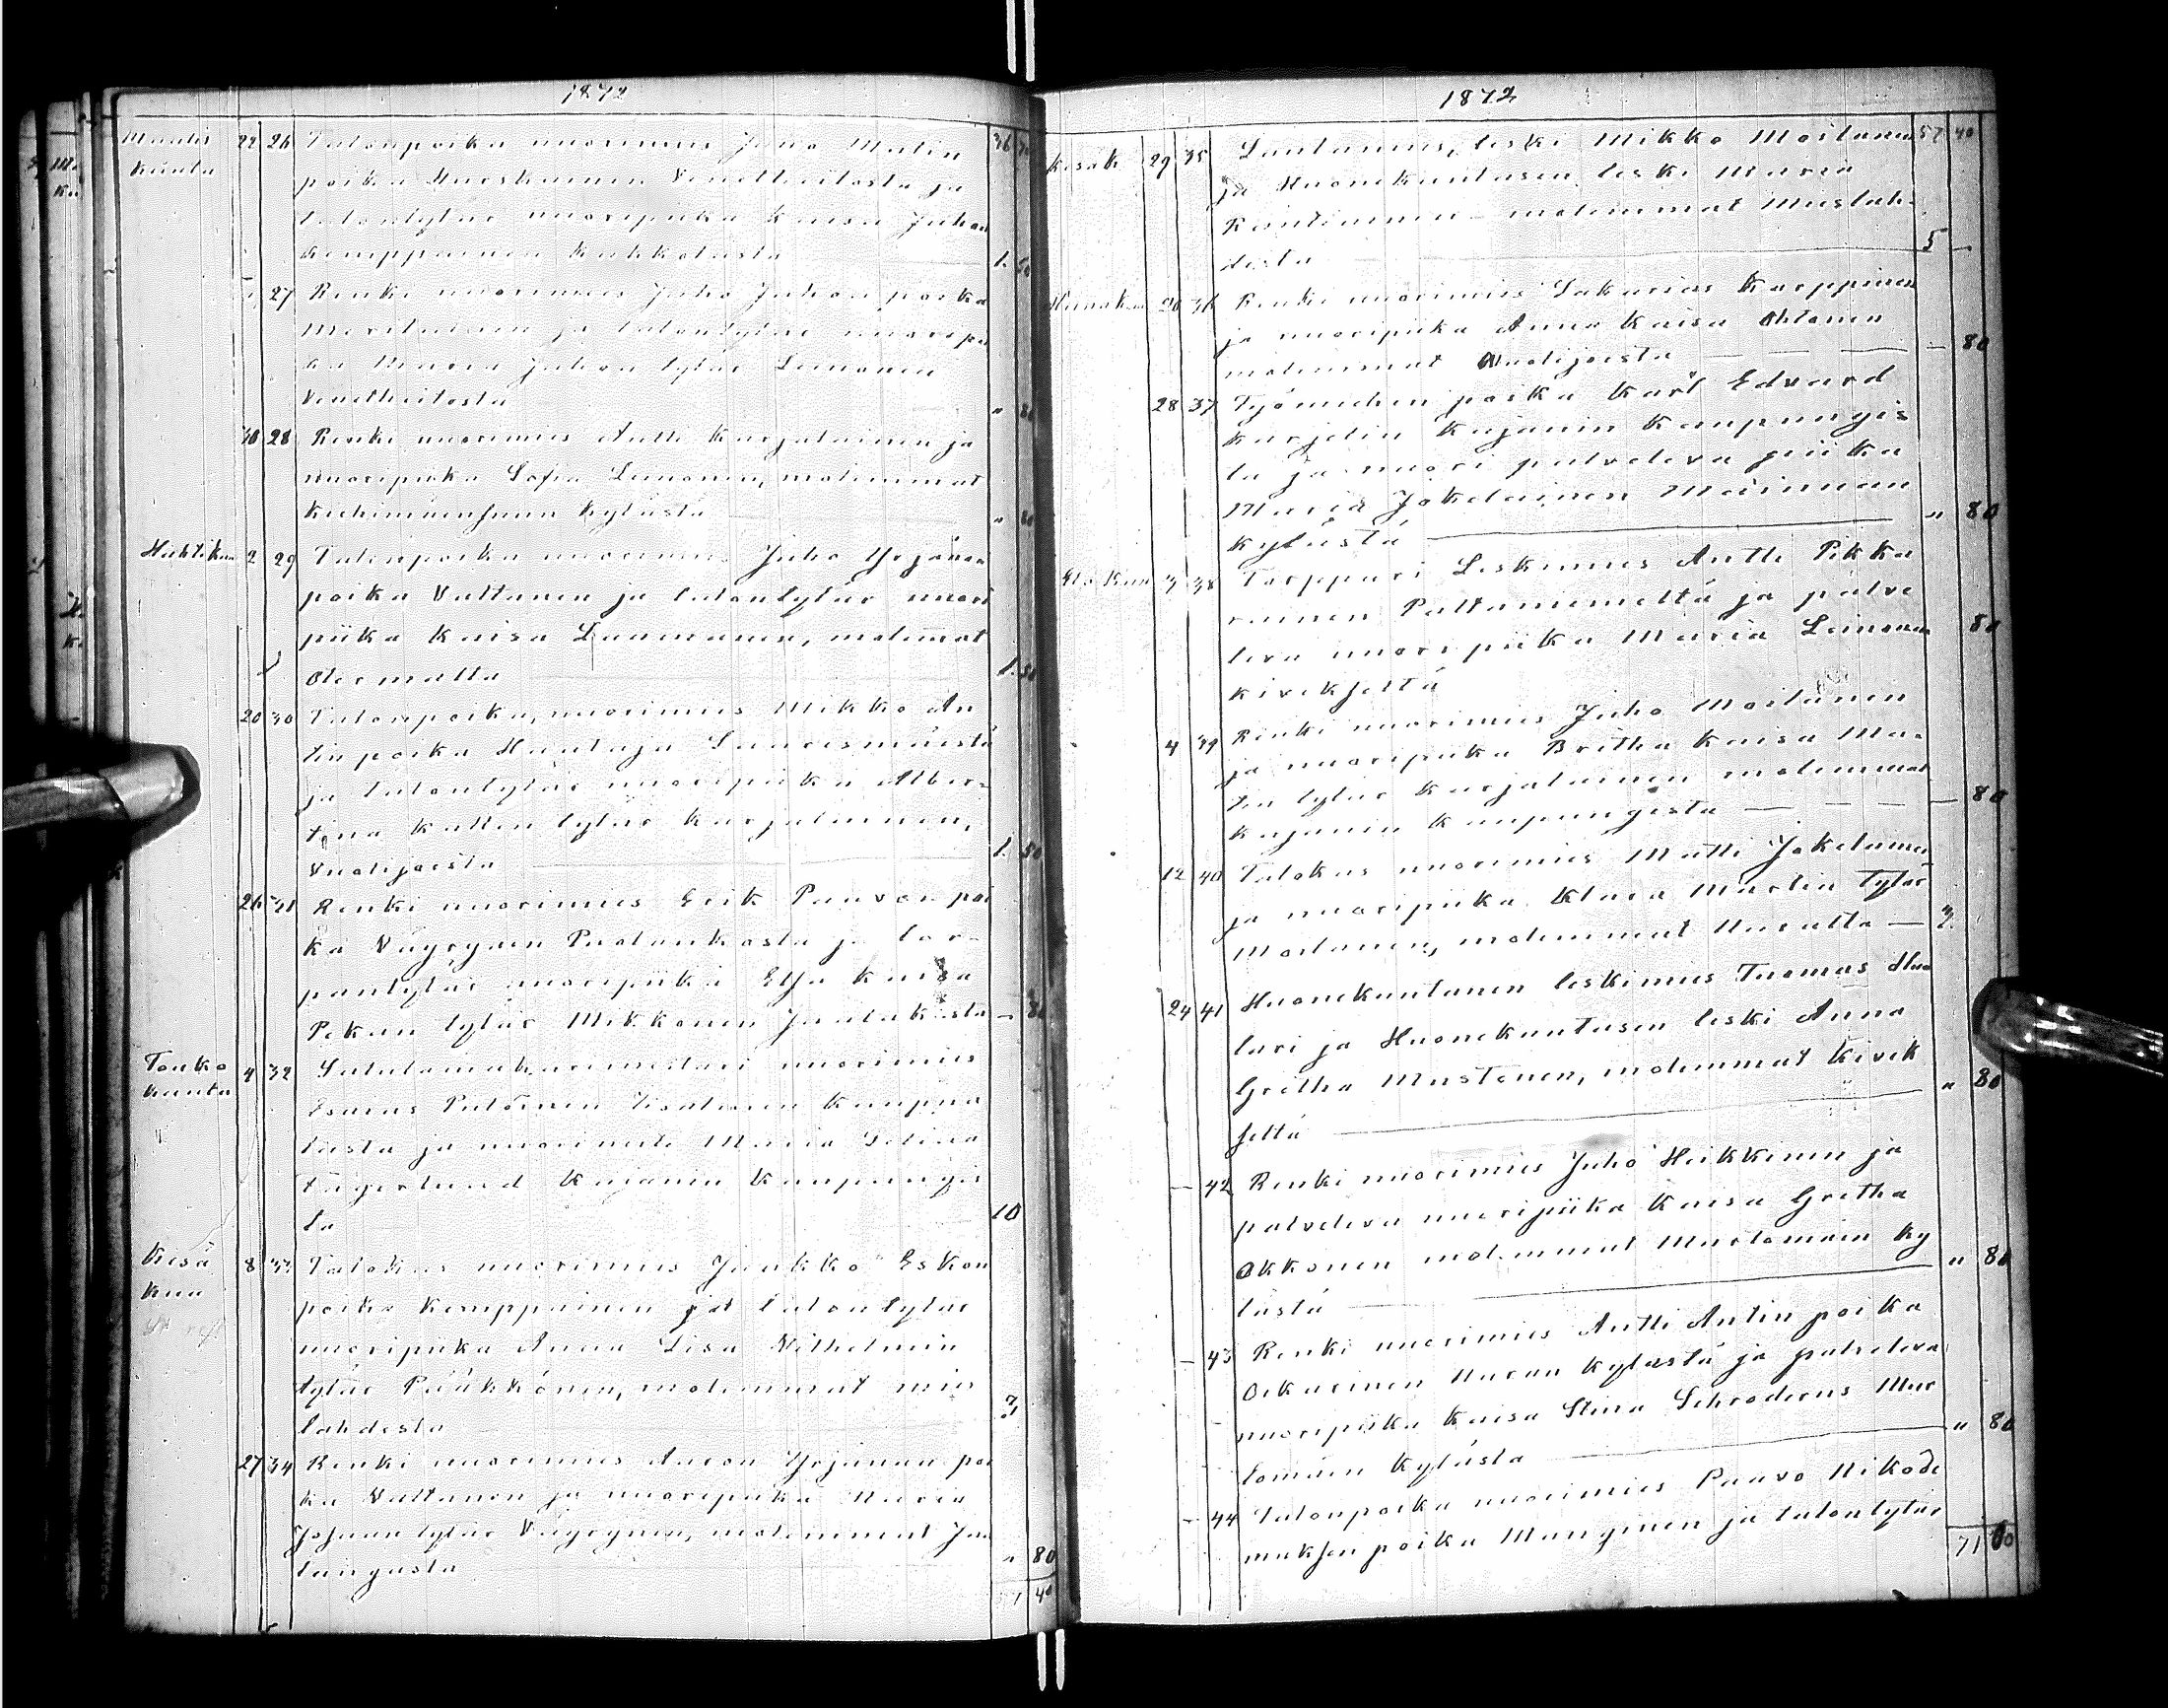 1872
Maalis 22 26 Talonpoika nuorimies Juho Matin 36
kuuta poika Hurskainen Venetheitosta ja
talontytär nuoripiika Kaisa Juhon
Kemppainen Kuhkolasta 1. 50
27 Renki nuorimies Juho Juhon poika
Meriläinen ja talontytär nuoripii
ka Maria Juhon tytär Leinonen
Venetheitosta " 80
30 28 Renki nuorimies Antti Karjalainen ja
nuoripiika Sofia Leinonen, molemmat
Kiehimäensuun Kylästä " 80
Huhtikuu 2 29 Talonpoika nuorimies Juho Yrjänän
poika Valtanen ja talontytär nuori
piika Kaisa Laumanen, molemat
Otermalta 1. 50
20 30 Talonpoika, nuorimies Mikko An
tin poika Hautaja Saaresmäestä
ja talontytär nuoripiika Alber-
tina Kallen tytär Karjalainen,
Vuolijoesta 1. 50
26 31 Renki nuorimies Erik Paavon poi
ka Väyrynen Puolankasta ja tor-
pantytär nuoripiika Elsa Kaisa
Pekan tytär Mikkonen Jaalakasta — 80
Touko 4 32 Satulamaakarimestari nuorimies
kuuta Esaias Putoinen Iisalmen Kaupun
kista ja nuorineiti Maria Selina
Tägerlund Kajanin Kaupungis
ta 10
Kesä 8 33 Talokas nuorimies Jaakko Eskon
kuu poika Kemppainen ja talontytär
nuoripiika Anna Lisa Wilhelmin
tytär Pääkkönen, molemmat mies
lahdesta 3
27 34 Renki nuorimies Aaron Yrjänän poi
ka Valtanen ja nuoripiika Maria
Josuan tytär Väyrynen, molemmat Jaa
langasta " 80
57 40
1872
57 40
kesäk 29 35 Lautamies, leski Mikko Moilanen
ja Huonekuntasen leski Maria
Rontiainen molemmat Mieslah-
desta 5 —
Heinäkuu 26 36 Renki nuorimies Sakarias Karppinen
ja nuoripiika Anna Kaisa Ohtonen
molemmat Vuolijoesta — — — — 80
28 37 Työmiehen poika Karl Edvard
Karjelin Kajanin Kaupungis
ta ja nuori palveleva piika
Maria Jokelainen Mainuan
Kylästä " 80
Elokuu 3 38 Torppari Leskimies Antti Pikka
rainen Paltaniemeltä ja palve
leva nuoripiika Maria Leinonen 80
kiveksestä
4 39 Renki nuorimies Juho Moilanen
ja nuoripiika Britha Kaisa Ma-
tin tytär Karjalainen molemmat
Kajanin Kaupungista — — — — 80
12 40 Talokas nuorimies Matti Jokelainen
ja nuoripiika Klara Martin Tytär
Moilanen, molemmat Uuralta — 3.
24 41 Huonekuntanen leskimies Tuomas
lari ja Huonekuntasen leski Anna
Gretha Mustonen, molemmat Kivek
seltä " 80
— 42 Renki nuorimies Juho Heikkinen ja
palveleva nuoripiika Kaisa Gretha
Okkonen molemmat Murtomäen Ky
lästä " 80
— 43 Renki nuorimies Antti Antin poika
Oikarinen Uuran Kylästä ja palveleva
nuoripiika Kaisa Stina Schroderus Mur
tomäen Kylästä " 80
— 44 Talonpoika nuorimies Paavo Nikode
muksen poika Manninen ja talontytär
71 60